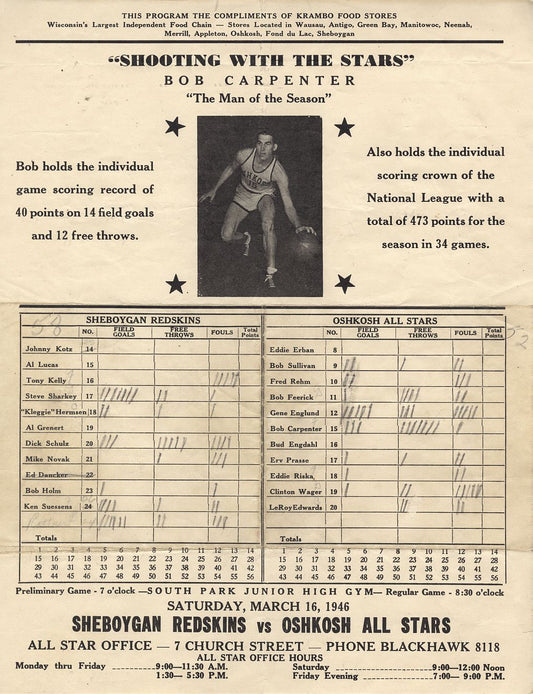 THIS PROGRAM THE COMPLIMENTS OF KRAMBO FOOD STORES
Wisconsin's Largest Independent Food Chain — Stores Located in Wausau, Antigo, Green Bay, Manitowoc, Neenah,
Merrill, Appleton, Oshkosh, Fond du Lac, Sheboygan
"SHOOTING WITH THE STARS"
BOB CARPENTER
"The Man of the Season"
Bob holds the individual
game scoring record of
40 points on 14 field goals
and 12 free throws.
Also holds the individual
scoring crown of the
National League with a
total of 473 points for the
season in 34 games.
58
SHEBOYGAN REDSKINS
NO. FIELD GOALS FREE THROWS FOULS Total Points
Johnny Kotz 14
Al Lucas 15
Tony Kelly 16
Steve Sharkey 17
"Kleggie" Hermsen 18
Al Grenert 19
Dick Schulz 20
Mike Novak 21
Ed Dancker 22
Bob Holm 23
Ken Suessens 24
Totals
1 2 3 4 5 6 7 8 9 10 11 12 13 14
15 16 17 18 19 20 21 22 23 24 25 26 27 28
29 30 31 32 33 34 35 36 37 38 39 40 41 42
43 44 45 46 47 48 49 50 51 52 53 54 55 56
52
OSHKOSH ALL STARS
NO. FIELD GOALS FREE THROWS FOULS Total Points
Eddie Erban 8
Bob Sullivan 9
Fred Rehm 10
Bob Feerick 11
Gene Englund 12
Bob Carpenter 15
Bud Engdahl 16
Erv Prasse 17
Eddie Riska 18
Clinton Wager 19
LeRoy Edwards 20
Totals
1 2 3 4 5 6 7 8 9 10 11 12 13 14
15 16 17 18 19 20 21 22 23 24 25 26 27 28
29 30 31 32 33 34 35 36 37 38 39 40 41 42
43 44 45 46 47 48 49 50 51 52 53 54 55 56
Preliminary Game - 7 o'clock —SOUTH PARK JUNIOR HIGH GYM— Regular Game - 8:30 o'clock
SATURDAY, MARCH 16, 1946
SHEBOYGAN REDSKINS vs OSHKOSH ALL STARS
ALL STAR OFFICE — 7 CHURCH STREET — PHONE BLACKHAWK 8118
ALL STAR OFFICE HOURS
Monday thru Friday 9:00—11:30 A.M.
1:30— 5:30 P.M.
Saturday 9:00—12:00 Noon
Friday Evening 7:00— 9:00 P.M.